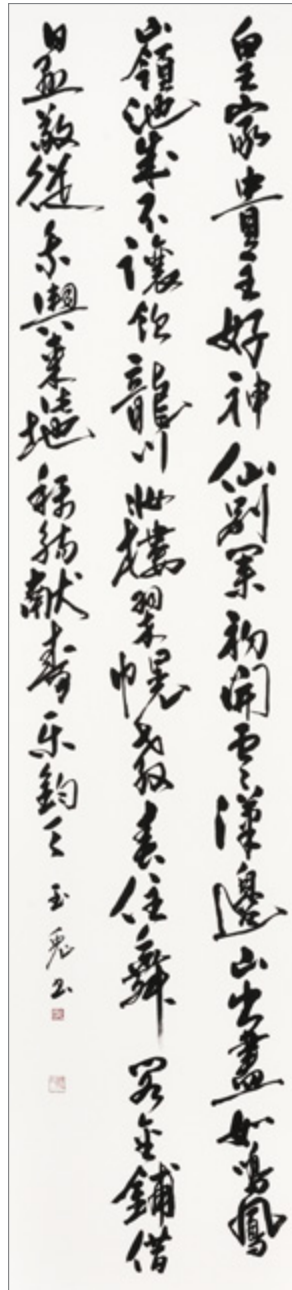 皇家貴主好神仙別業初開雲漢邊山出盡如鳴鳳
嶺池成不讓飲龍川妝樓翠幌教春住舞閣金鋪借
日懸敬從乘輿來此地稱觴献壽乐鈞天
玉书